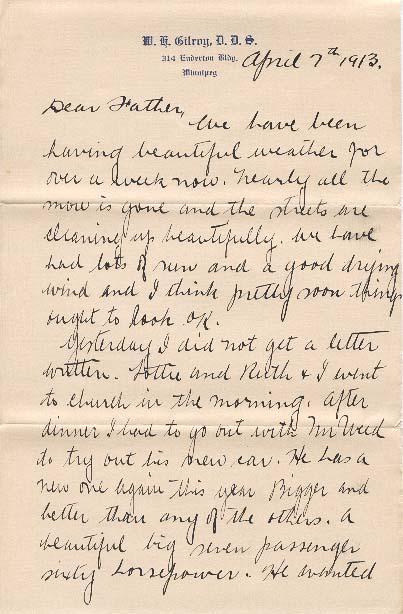 W. H. Gilroy, D. D. S.
314 Enderton Bldg.
Winnipeg
April 7th 1913.
Dear Father,
We have been
having beautiful weather for
over a week now. Nearly all the
snow is gone and the streets are
cleaning up beautifully. We have
had lots of sun and a good drying
wind and I think pretty soon things
ought to look OK.
Yesterday I did not get a letter
written. Lottie and Ruth & I went
to church in the morning. After
dinner I had to go out with Mr Weed
to try out his new car. He has a
new one again this year Bigger and
better than any of the others. A
beautiful big seven passenger
sixty horsepower. He wanted